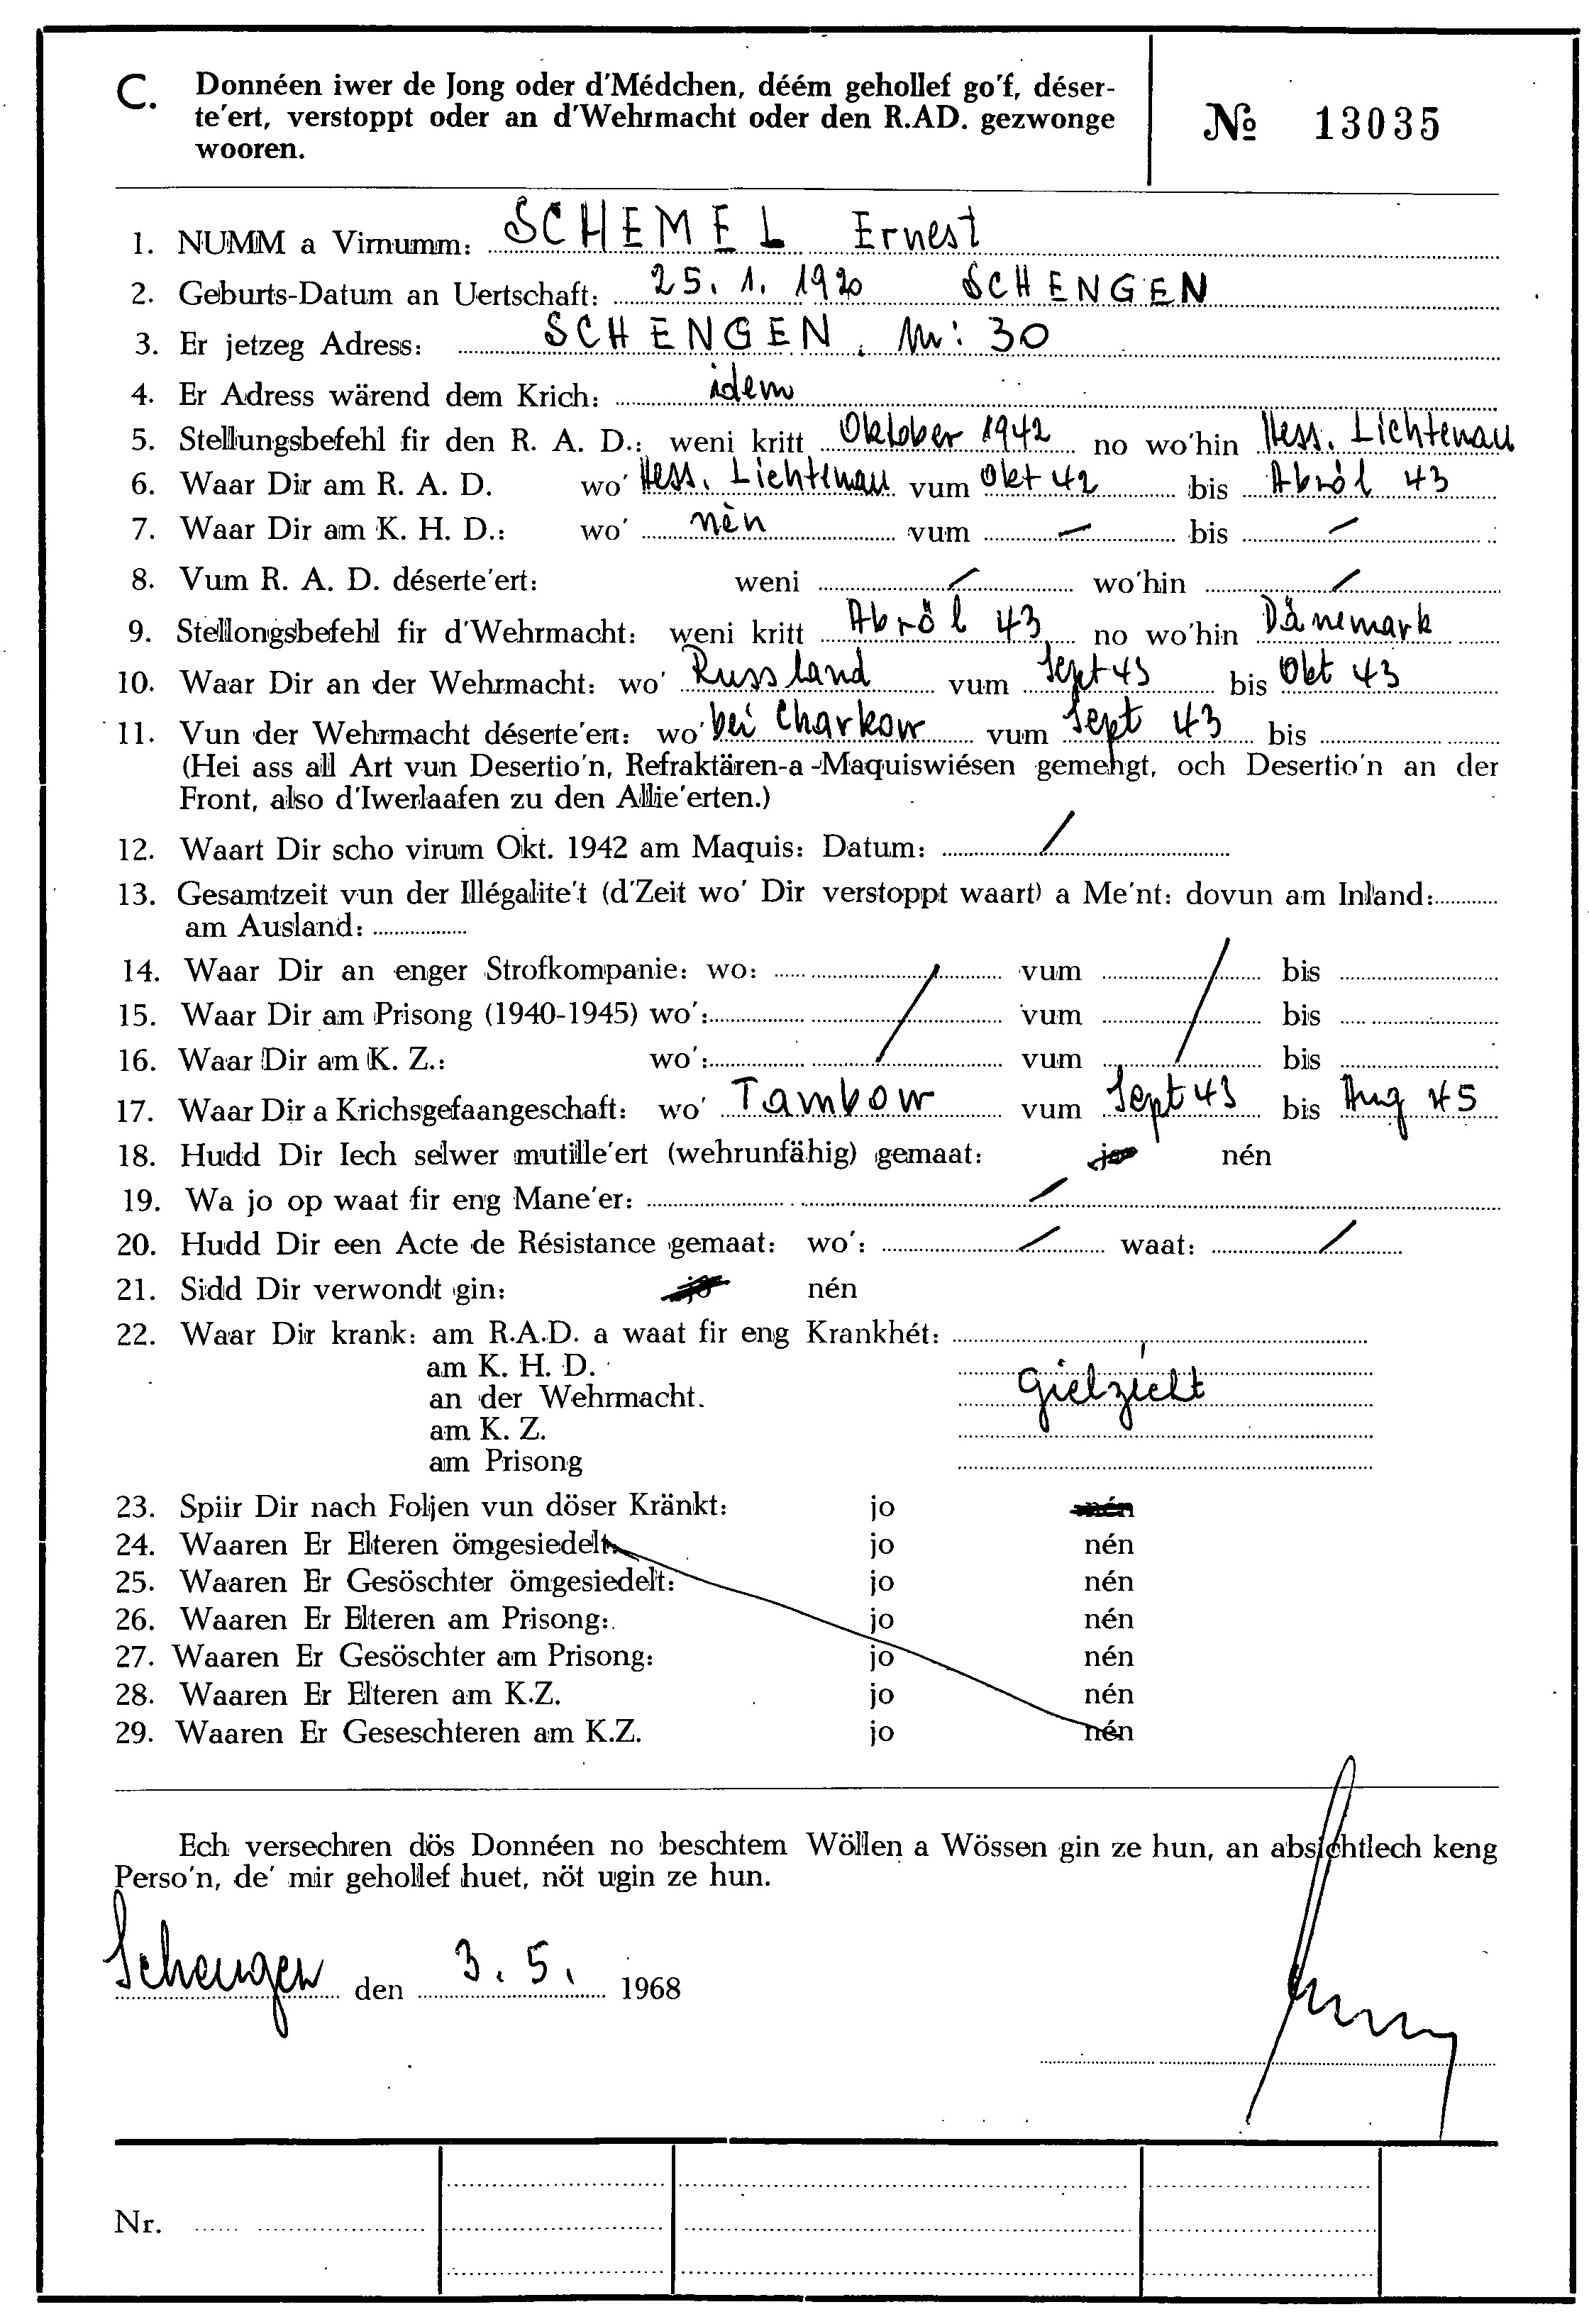 C. Donnéen iwer de Jong oder d'Médchen, déém gehollef go'f, déser-
te'ert, verstoppt oder an d'Wehrmacht oder den R.AD. gezwonge
wooren.
№ 13035
1. NUMM a Virnumm: SCHEMEL Ernest
2. Geburts-Datum an Uertschaft: 25. 1. 1920 SCHENGEN
3. Er jetzeg Adress: SCHENGEN, Nr: 30
4. Er Adress wärend dem Krich: idem
5. Stellungsbefehl fir den R. A. D.: weni kritt Oktober 1942 no wo'hin Hess. Lichtenau
6. Waar Dir am R. A. D. wo' Hess. Lichtenau vum Okt 42 bis Abröl 43
7. Waar Dir am K. H. D.: wo' nèn vum — bis —
8. Vum R. A. D. déserte'ert: weni / wo'hin /
9. Stellongsbefehl fir d'Wehrmacht: weni kritt Abröl 43 no wo'hin Dänemark
10. Waar Dir an der Wehrmacht: wo' Russland vum Sept 43 bis Okt 43
11. Vun der Wehrmacht déserte'ert: wo' bei Charkow vum Sept 43 bis
(Hei ass all Art vun Desertio'n, Refraktären-a-Maquiswiésen gemengt, och Desertio'n an der
Front, also d'Iwerlaafen zu den Allie'erten.)
12. Waart Dir scho virum Okt. 1942 am Maquis: Datum: /
13. Gesamtzeit vun der Illégalite't (d'Zeit wo' Dir verstoppt waart) a Me'nt: dovun am Inland:
am Ausland:
14. Waar Dir an enger Strofkompanie: wo: vum bis
15. Waar Dir am Prisong (1940-1945) wo': vum bis
16. Waar Dir am K. Z.: wo': vum bis
17. Waar Dir a Krichsgefaangeschaft: wo' Tambow vum Sept 43 bis Aug 45
18. Hudd Dir Iech selwer mutille'ert (wehrunfähig) gemaat: jo nén
19. Wa jo op waat fir eng Mane'er: /
20. Hudd Dir een Acte de Résistance gemaat: wo': / waat: /
21. Sidd Dir verwondt gin: jo nén
22. Waar Dir krank: am R.A.D. a waat fir eng Krankhét:
am K. H. D.
an der Wehrmacht. Gielzicht
am K. Z.
am Prisong
23. Spiir Dir nach Foljen vun döser Kränkt: jo nén
24. Waaren Er Elteren ömgesiedelt: jo nén
25. Waaren Er Gesöschter ömgesiedelt: jo nén
26. Waaren Er Elteren am Prisong: jo nén
27. Waaren Er Gesöschter am Prisong: jo nén
28. Waaren Er Elteren am K.Z. jo nén
29. Waaren Er Geseschteren am K.Z. jo nén
Ech versechren dös Donnéen no beschtem Wöllen a Wössen gin ze hun, an absichtlech keng
Perso'n, de' mir gehollef huet, nöt ugin ze hun.
Schengen den 3. 5. 1968
Nr.